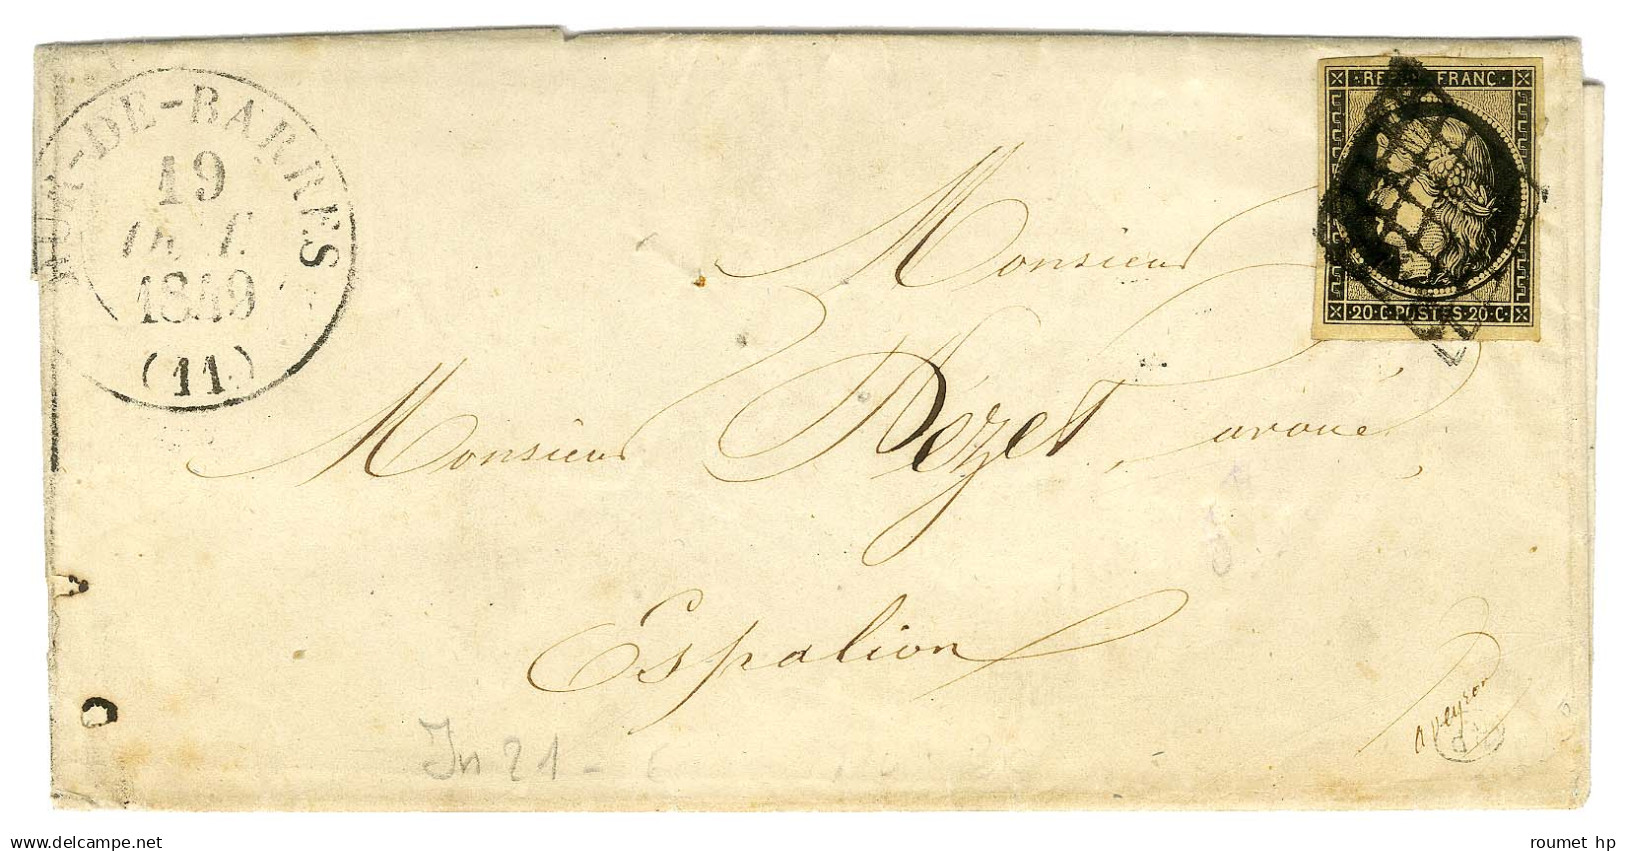 MUR-DE-BARRES
19
1849
(11)
REPUB FRANC
20·C·POSTES·20·C
Monsieur
Monsieur Rozet, avoué
Espalion
aveyron
In 21
delcampe.net
roumet hp